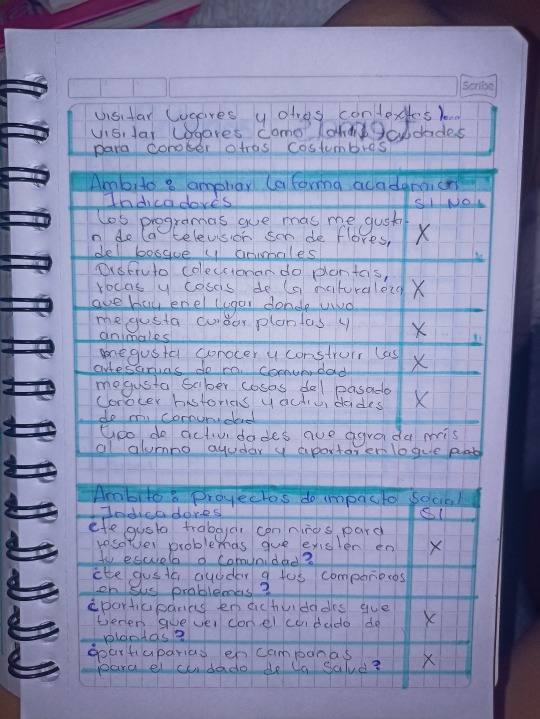 Scribe
visitar Lugares y otros contextos
visitar Logares como ciudades
para conocer otras costumbres
Ambito: ampliar la forma academica
Indicadores SI NO
Los programas que mas me gusta-
n de la television son de flores, X
del bosque y animales
Disfruto coleccionando plantas,
rocas y cosas de la naturaleza X
que hay en el lugar donde vivo
me gusta cuidar plantas y X
animales
me gusta conocer y construir las X
artesanias de mi comunidad
me gusta saber cosas del pasado
conocer historias y actividades X
de mi comunidad
tipo de actividades que agrada más
al alumno ayudar y aportar en lo que
Ambito: Proyectos de impacto Social
Indicadores SI
¿te gusta trabajar con niños para
resolver problemas que existen en X
tu escuela o comunidad?
¿te gusta ayudar a tus compañeros
en sus problemas?
¿participarias en actividades que
tienen que ver con el cuidado de X
plantas?
¿participarias en campañas X
para el cuidado de la Salud?